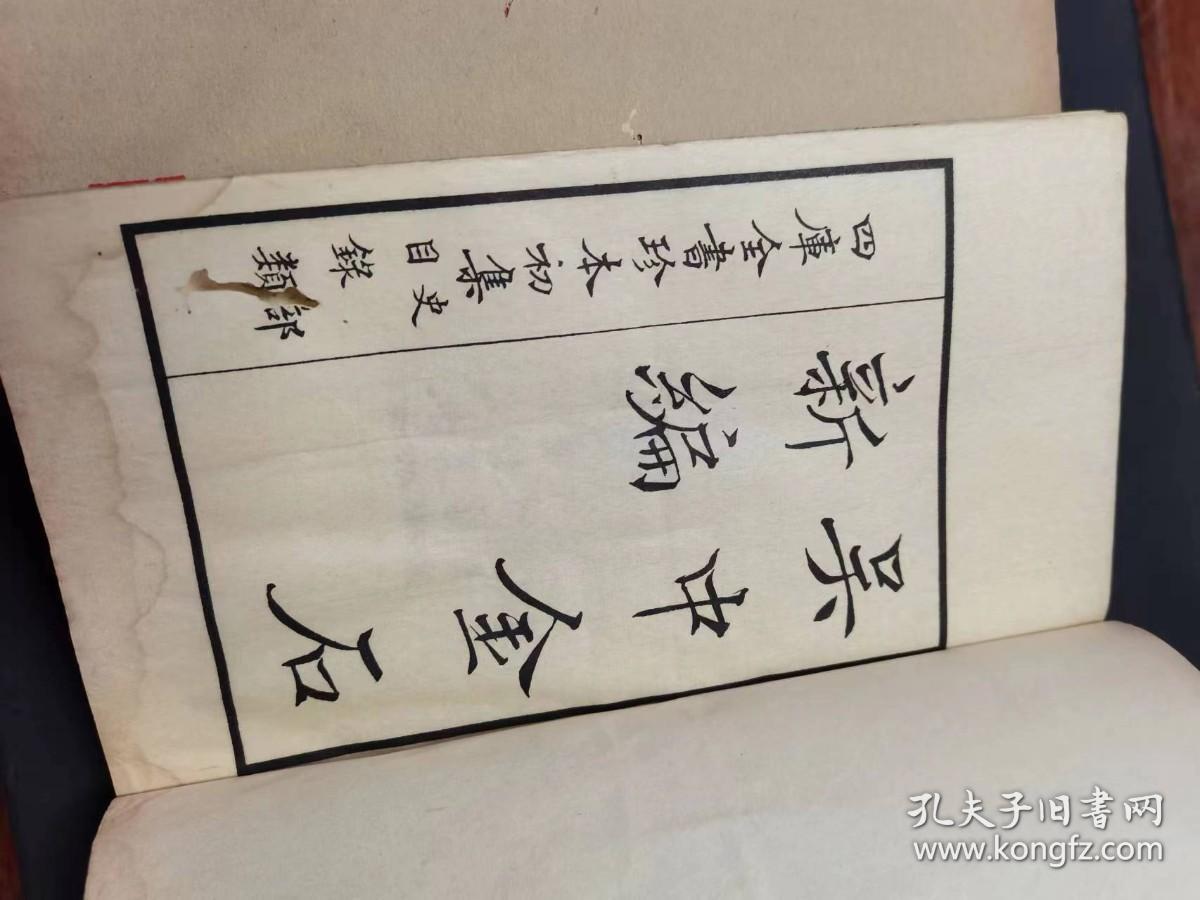 吳中金石
新編
四庫全書珍本初集
史部
目錄類
孔夫子旧書网
www.kongfz.com